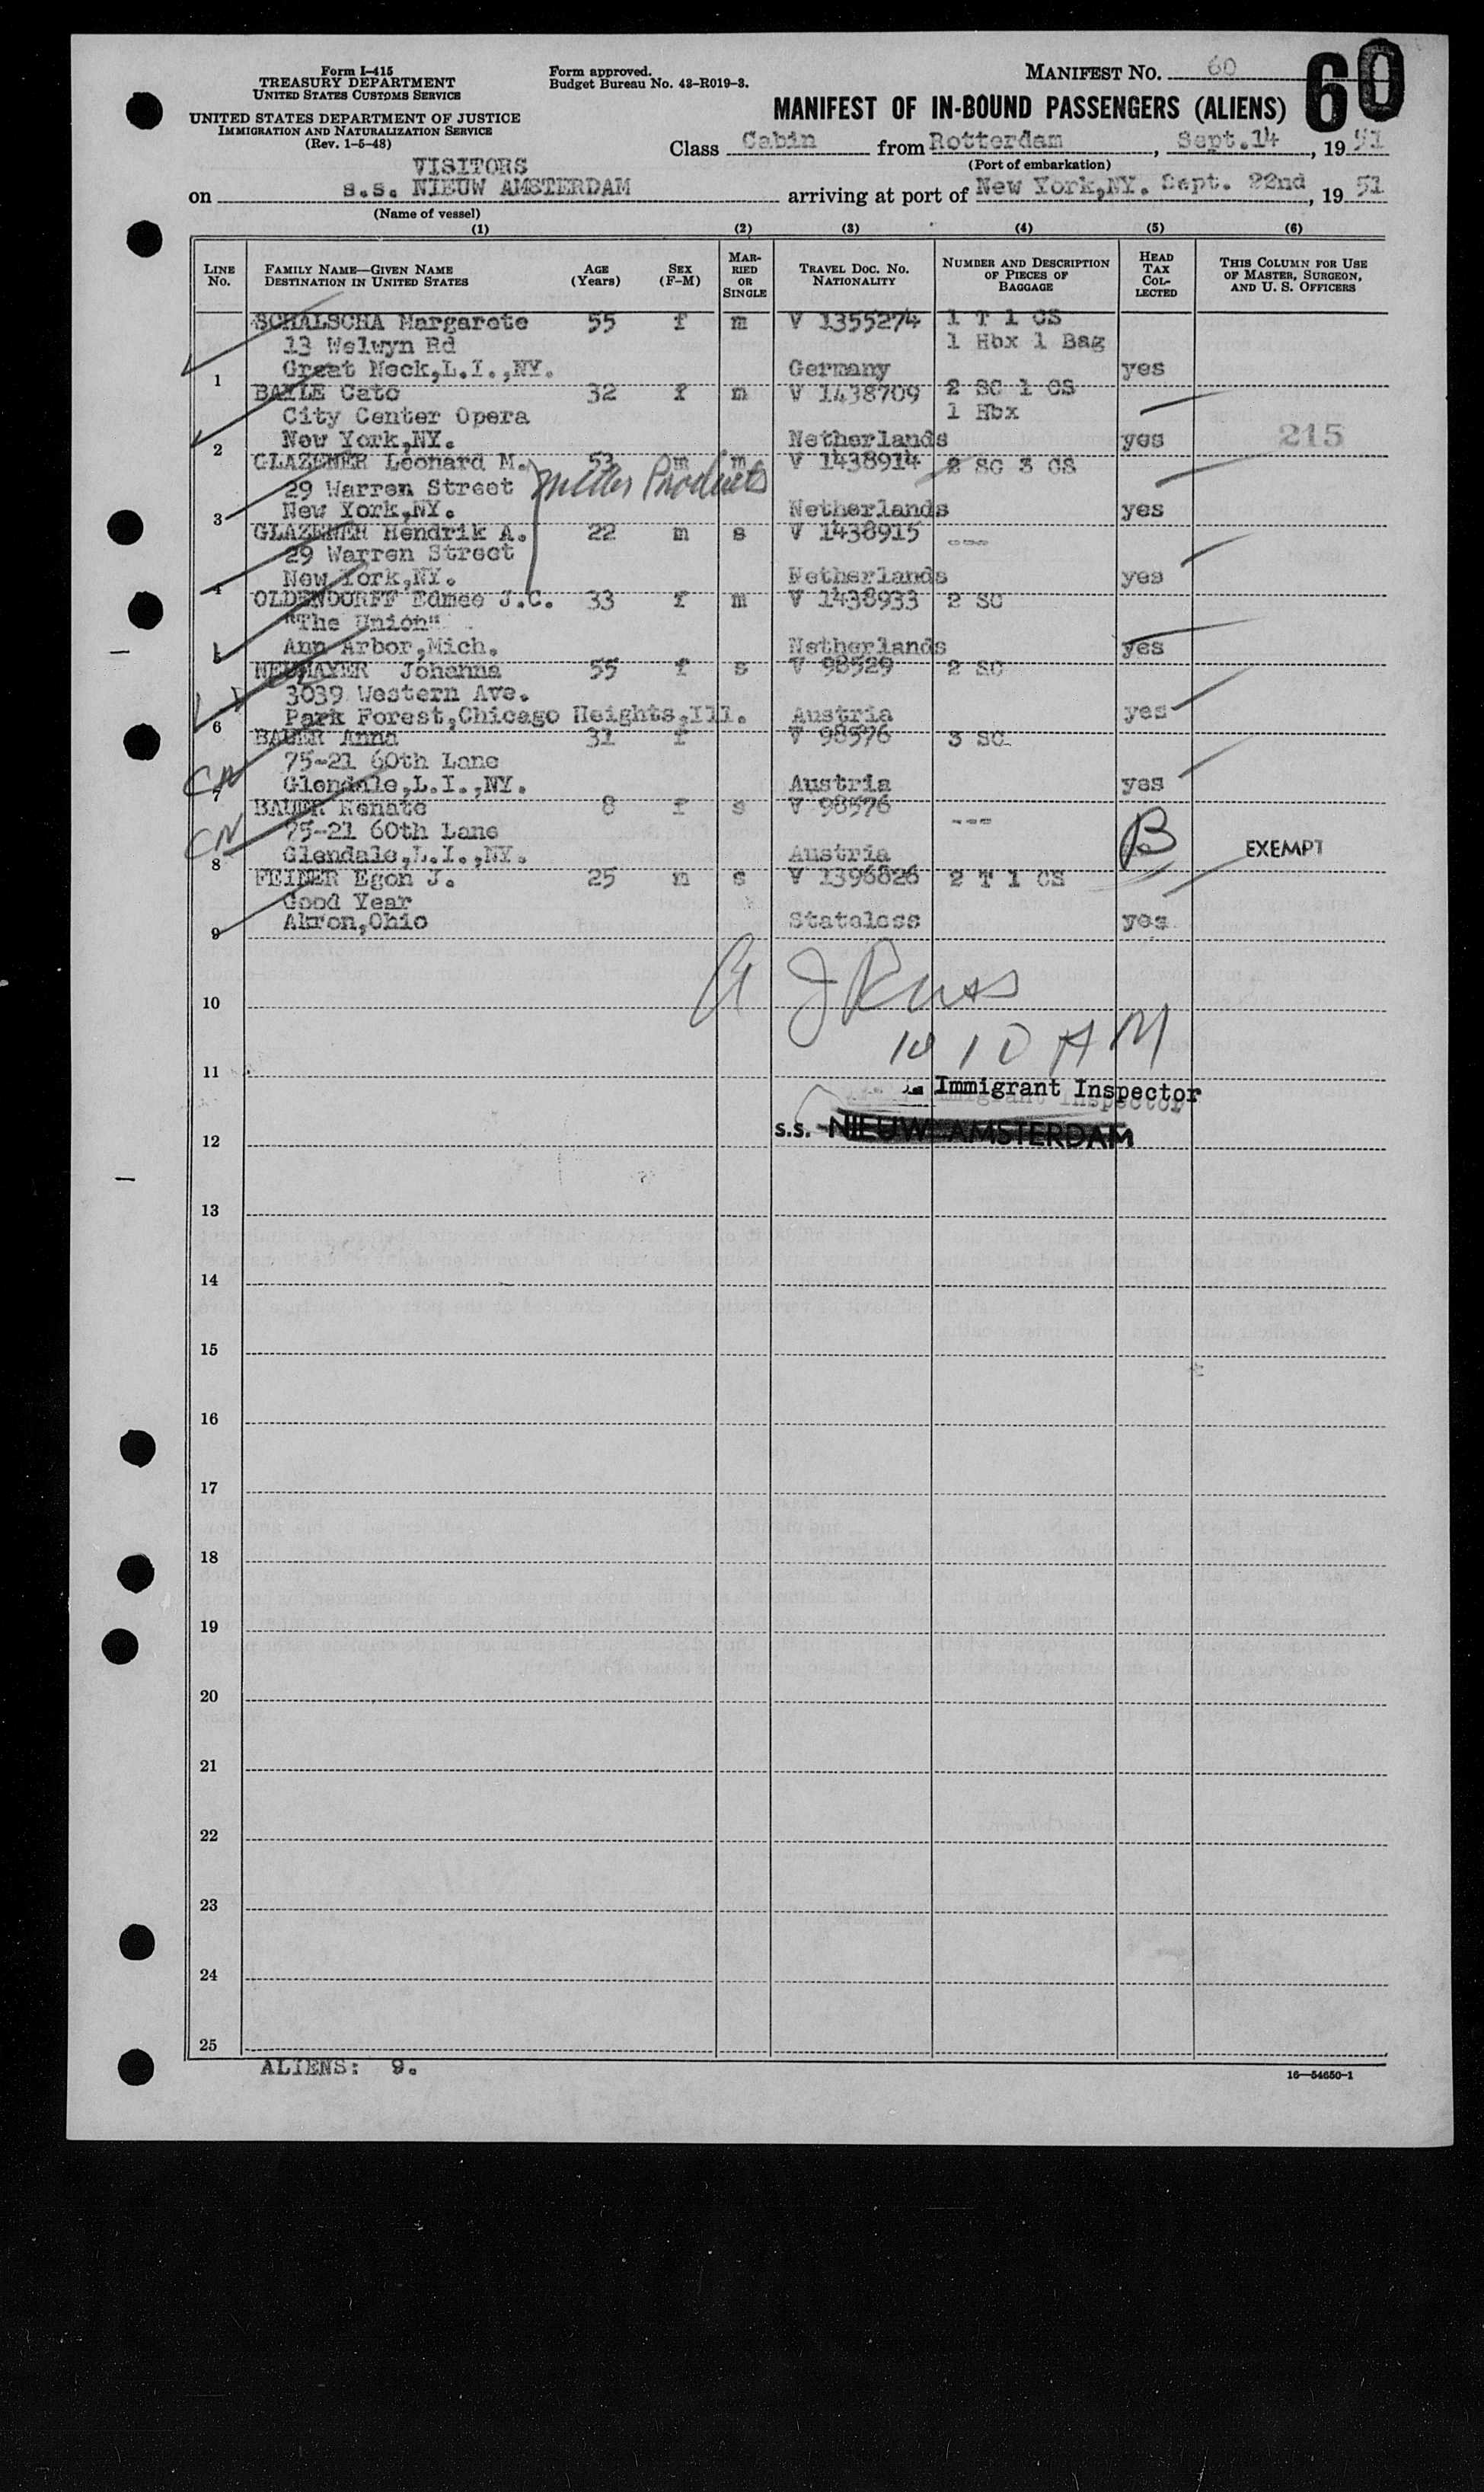 Form I-415
TREASURY DEPARTMENT
UNITED STATES CUSTOMS SERVICE
UNITED STATES DEPARTMENT OF JUSTICE
IMMIGRATION AND NATURALIZATION SERVICE
(Rev. 1-5-48)
Form approved.
Budget Bureau No. 43-R019-3.
MANIFEST NO. 60
60
MANIFEST OF IN-BOUND PASSENGERS (ALIENS)
Class Cabin from Rotterdam, Sept.14, 1951
(Port of embarkation)
VISITORS
on s.s. NIEUW AMSTERDAM arriving at port of New York,NY. Sept. 22nd, 1951
(Name of vessel)
(1) (2) (3) (4) (5) (6)
LINE NO. FAMILY NAME—GIVEN NAME DESTINATION IN UNITED STATES AGE (Years) SEX (F-M) MARRIED OR SINGLE TRAVEL DOC. NO. NATIONALITY NUMBER AND DESCRIPTION OF PIECES OF BAGGAGE HEAD TAX COLLECTED THIS COLUMN FOR USE OF MASTER, SURGEON, AND U. S. OFFICERS
SCHALSCHA Margarete 55 f m V 1355274 1 T 1 CS
13 Welwyn Rd 1 Hbx 1 Bag
1 Great Neck,L.I.,NY. Germany yes
Cato 32 f m V 1438709 2 SC 1 CS
City Center Opera 1 Hbx
2 New York,NY. Netherlands yes 215
GLAZENER Leonard M. 53 m m V 1438914 2 SC 3 CS
29 Warren Street Products
3 New York,NY. Netherlands yes
GLAZENER Hendrik A. 22 m s V 1438915 ---
29 Warren Street
4 New York,NY. Netherlands yes
OLDENDORFF Edmee J.C. 33 f m V 1438933 2 SC
"The Union"
5 Ann Arbor,Mich. Netherlands yes
NEUMAYER Johanna 55 f s V 98529 2 SC
3039 Western Ave.
6 Park Forest,Chicago Heights,Ill. Austria yes
BAUER Anna 31 f V 98576 3 SC
75-21 60th Lane
CN 7 Glendale,L.I.,NY. Austria yes
BAUER Renate 8 f s V 98576 ---
CN 75-21 60th Lane
8 Glendale,L.I.,NY. Austria B EXEMPT
FEINER Egon J. 25 m s V 1396826 2 T 1 CS
Good Year
9 Akron,Ohio Stateless yes
10
10 10 AM
11
Immigrant Inspector
12 s.s. NIEUW AMSTERDAM
13
14
15
16
17
18
19
20
21
22
23
24
25
ALIENS: 9.
16—54650-1